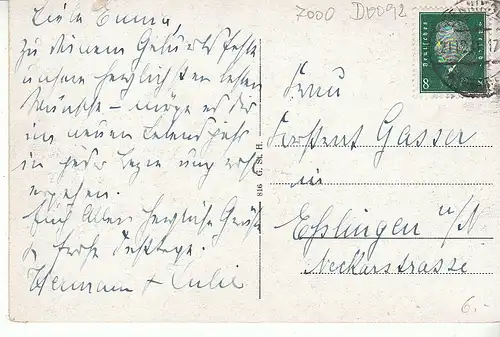 Liebe Emma,
zu Deinem Geburtsfeste
unsere herzlichsten besten
Wünsche – möge es dir
im neuen Lebensjahr
in jeder Lage
ergehen.
Euch Allen herzliche Grüße
& frohe Festtage.
Hermann + Julie
7000 D0092
Deutsches Reich
8
Frau
Gasser
in
Esslingen a/N.
Neckarstrasse
816 G. St. H.
6.-